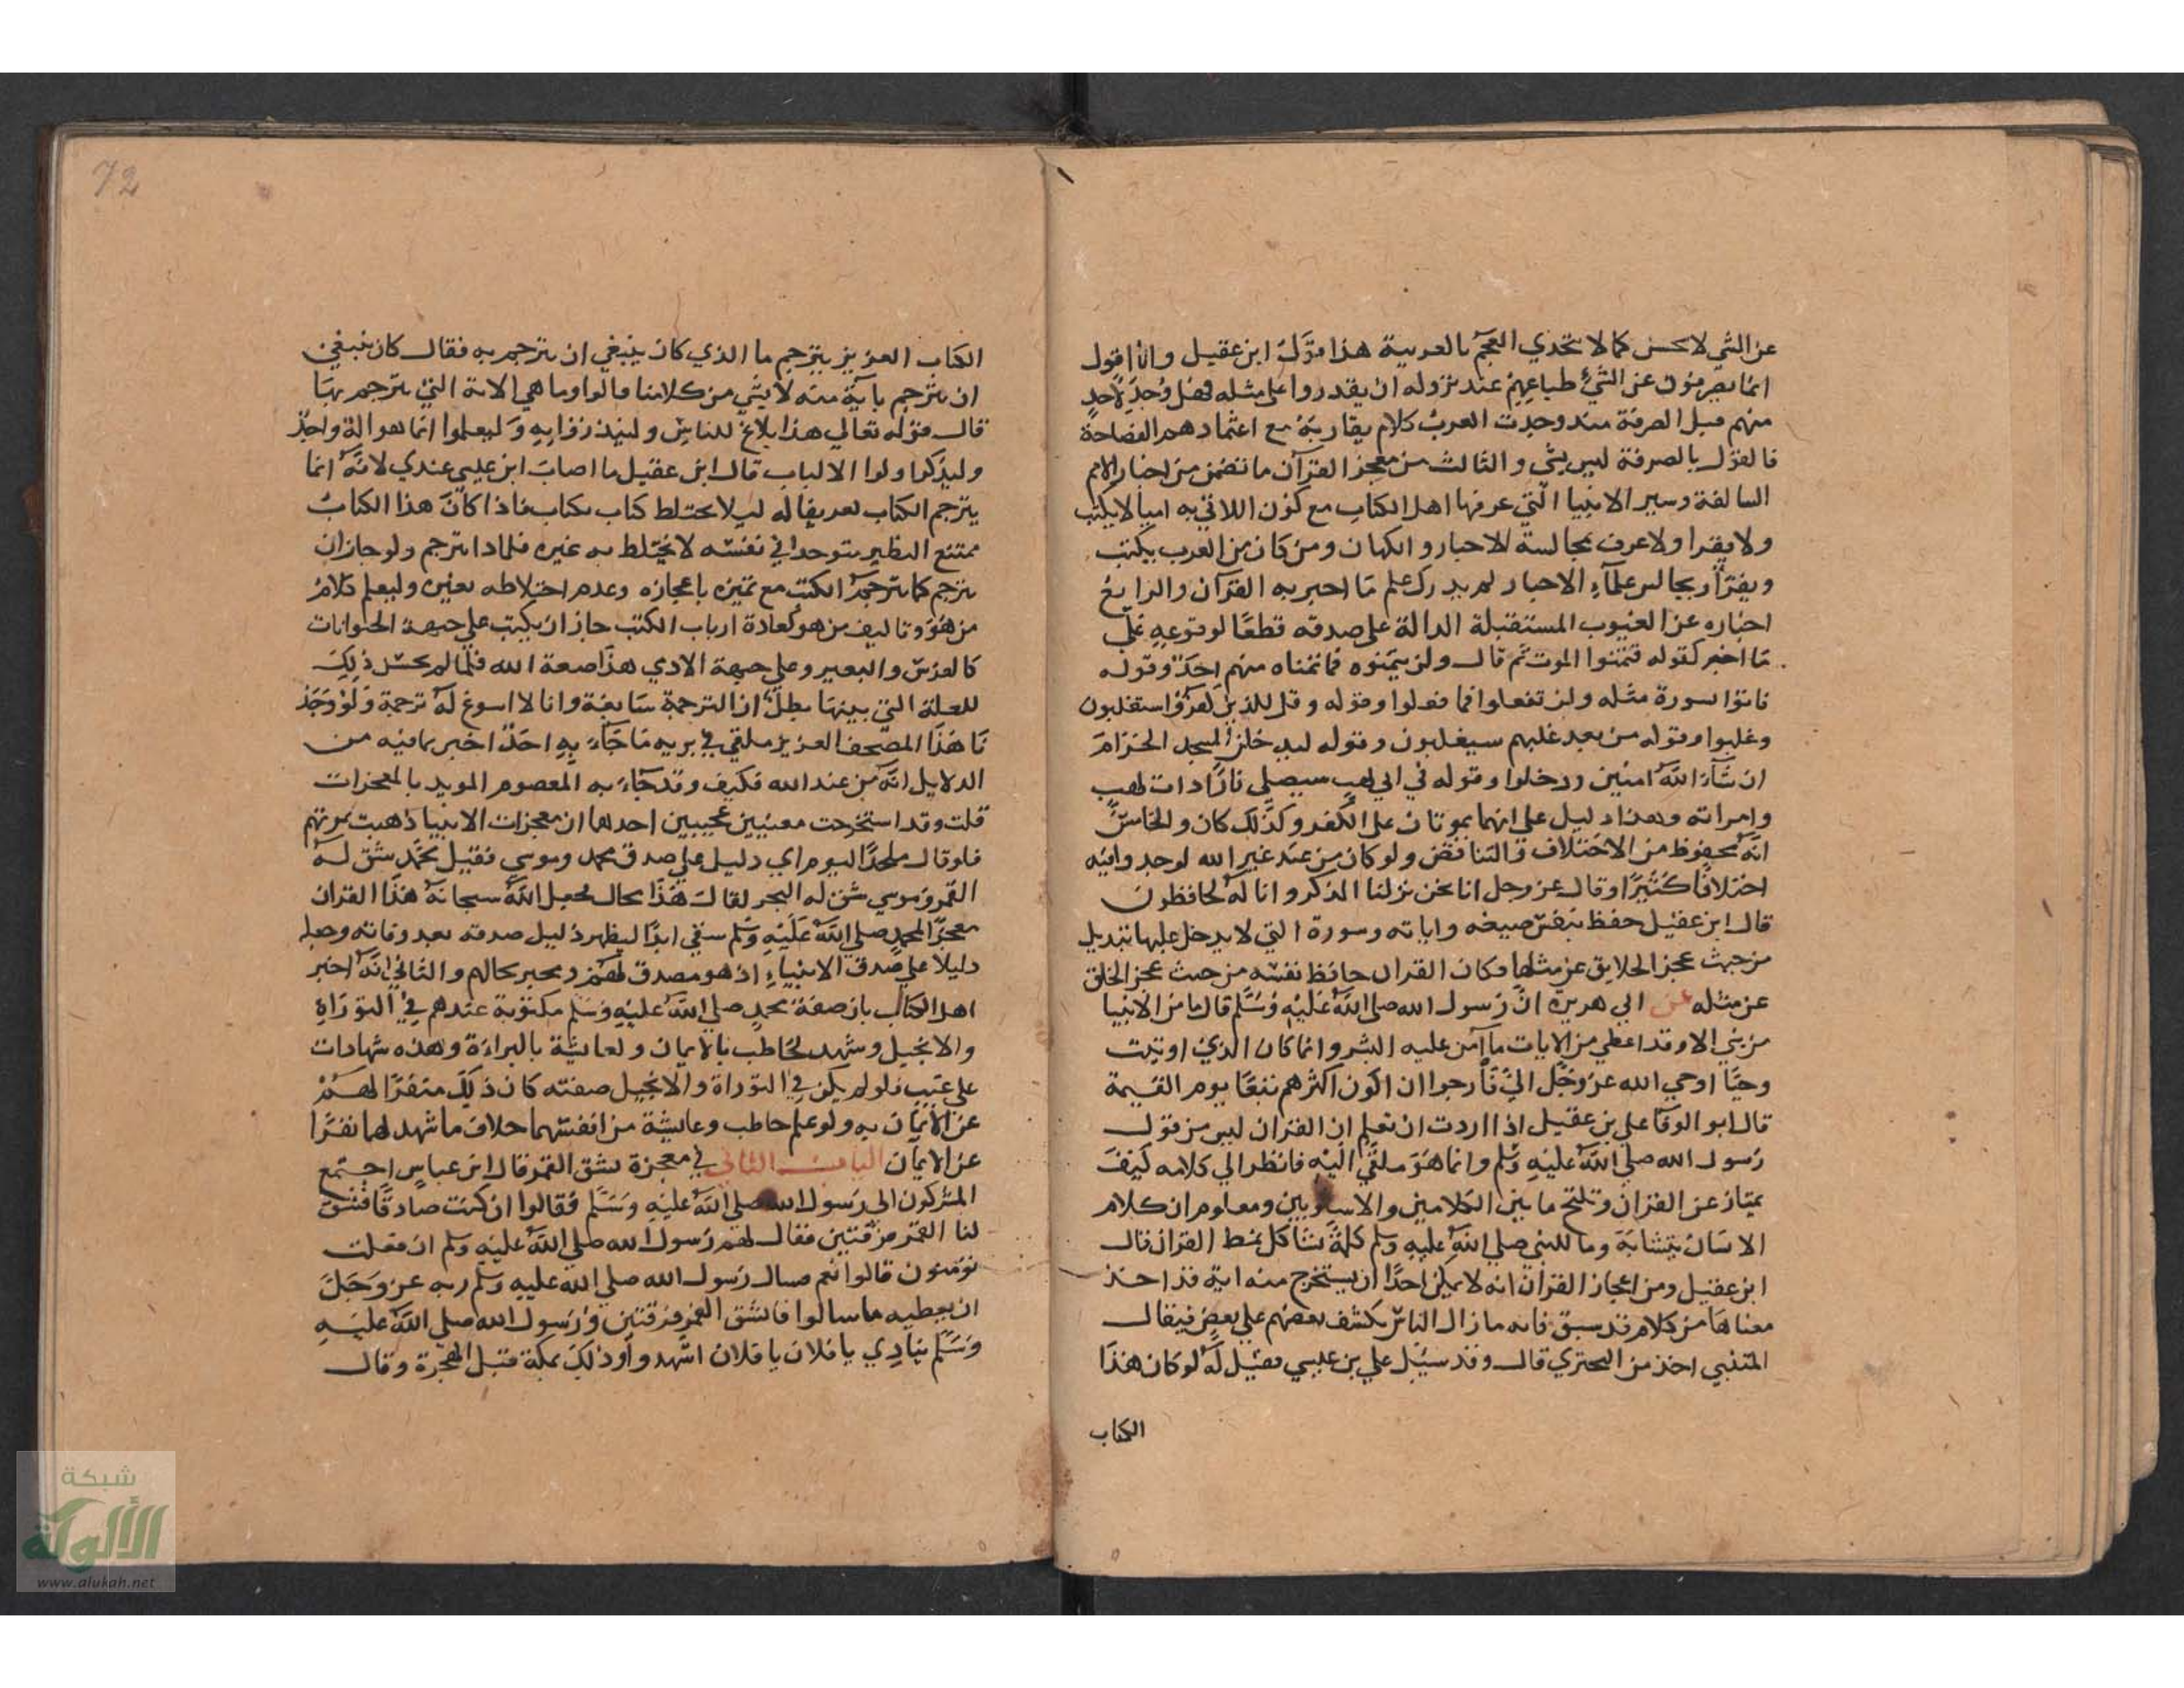 عن الشي لا يحسن كما لا تتحدي العجم بالعربية هذا قول ابن عقيل وانا اقول
انما يصرفون عن الشيء طباعهم عند نزوله ان يقدروا على مثله فهل وُجد لاحد
منهم قبل الصرفة منذ وجدت العرب كلام يقاربه مع اعتمادهم الفصاحة
فالقول بالصرفة ليس بشي والثالث من معجز القرآن ما تضمن من اخبار الامم
السالفة وسير الانبيا التي عرفها اهل الكتاب مع كون الاتي به اميا لا يكتب
ولا يقرا ولا عرف بمجالسة للاحبار والكهان ومن كان من العرب يكتب
ويقرا ويجالس علماء الاحبار لم يدرك علم ما اخبر به القرآن والرابع
اخباره عن الغيوب المستقبلة الدالة على صدقه قطعا لوقوعه على
ما اخبر كقوله فتمنوا الموت ثم قال ولن يتمنوه فما تمناه منهم احد وقوله
فاتوا بسورة مثله ولن تفعلوا فما فعلوا وقوله وقل للذين كفروا ستغلبون
وغلبوا وقوله من بعد غلبهم سيغلبون وقوله لتدخلن المسجد الحرام
ان شآء الله امنين ودخلوا وقوله في ابي لهب سيصلى نارا ذات لهب
وامراته وهذا دليل على انهما يموتان على الكفر وكذلك كان والخامس
انه محفوظ من الاختلاف والتناقض ولو كان من عند غير الله لوجدوا فيه
اختلافا كثيرا وقال عز وجل انا نحن نزلنا الذكر وانا له لحافظون
قال ابن عقيل حفظ بنفس صيغه واياته وسورة التي لا يدخل عليها تبديل
من حيث عجز الخلايق عن مثلها فكان القرآن حافظ نفسه من حيث عجز الخلق
عن مثله عن ابي هريرة ان رسول الله صلى الله عليه وسلم قال ما من الانبيا
من نبي الا وقد اعطي من الايات ما آمن عليه البشر وانما كان الذي اوتيت
وحيا اوحي الله عز وجل الي فأرجوا ان اكون اكثرهم تبعا يوم القيمة
قال ابو الوفا علي بن عقيل اذا اردت ان تعلم ان القران ليس من قول
رسول الله صلى الله عليه وسلم وانما هو ملقى اليه فانظر الي كلامه كيف
يمتاز عن القران وتلمح ما بين الكلامين والاسلوبين ومعلوم ان كلام
الانسان يتشابه وما للنبي صلى الله عليه وسلم كلمة تشاكل نمط القران قال
ابن عقيل ومن اعجاز القران انه لا يمكن احدا ان يستخرج منه اية قد اخذ
معناها من كلام قد سبق فانه ما زال الناس يكشف بعضهم علي بعض فيقال
المتنبي اخذ من البحتري قال وقد سيل علي بن عيسي فقيل له لو كان هذا
الكتاب
72
الكتاب العزيز يترجم ما الذي كان ينبغي ان يترجم به فقال كان ينبغي
ان يترجم باية منه لا بشي من كلامنا قالوا وما هي الاية التي يترجم بها
قال قوله تعالي هذا بلاغ للناس ولينذروا به وليعلموا انما هو اله واحد
وليذكر اولوا الالباب قال ابن عقيل ما اصاب ابن عيسي عندي لانه انما
يترجم الكتاب تعريفا له ليلا يختلط كتاب بكتاب فاذا كان هذا الكتاب
ممتنع النظير متوحدا في نفسه لا يختلط به غيره فلماذا يترجم ولو جاز ان
يترجم كما يترجم الكتب مع تميزه باعجازه وعدم اختلاطه بغيره وليعلم كلام
من هو وتاليف من هو كعادة ارباب الكتب جاز ان يكتب علي جبهة الحيوانات
كالفرس والبعير وعلي جبهة الادمي هذا صنعة الله فلما لم يحسن ذلك
للعلة التي بينها بطل ان الترجمة سايغة وانا لا اسوغ له ترجمة ولو وجد
نا هذا المصحف العزيز ملقي في بريه ما جاء به احد اخبر بما فيه من
الدلايل انه من عند الله فكيف وقد جاء به المعصوم المويد بالمعجزات
قلت وقد استخرجت معنيين عجيبين احدهما ان معجزات الانبيا ذهبت بموتهم
فلو قال ملحد اليوم اي دليل علي صدق محمد وموسي فقيل محمد شق له
القمر وموسي شق له البحر لقال هذا محال فجعل الله سبحانه هذا القران
معجزا لمحمد صلى الله عليه وسلم سقي ابدا ليظهر دليل صدقه بعد وفاته وجعله
دليلا علي صدق الانبياء اذ هو مصدق لهم ومخبر بحالهم والثاني انه اخبر
اهل الكتاب بان صفة محمد صلى الله عليه وسلم مكتوبة عندهم في التوراة
والانجيل وشهد لحاطب بالايمان ولعايشة بالبراءة وهذه شهادات
علي غيب فلو لم يكن في التوراة والانجيل صفته كان ذلك منفرا لهم
عن الايمان به ولو علم حاطب وعايشة من انفسهما خلاف ما شهد لهما نفرا
عن الايمان الباب الثاني في معجزة بشق القمر قال ابن عباس اجتمع
المشركون الى رسول الله صلى الله عليه وسلم فقالوا ان كنت صادقا فشق
لنا القمر فرقتين فقال لهم رسول الله صلى الله عليه وسلم ان فعلت
تومنون قالوا نعم فسال رسول الله صلى الله عليه وسلم ربه عز وجل
ان يعطيه ما سالوا فانشق القمر فرقتين ورسول الله صلى الله عليه
وسلم ينادي يا فلان يا فلان اشهدوا وذلك بمكة قبل الهجرة وقال
شبكة
الألوكة
www.alukah.net